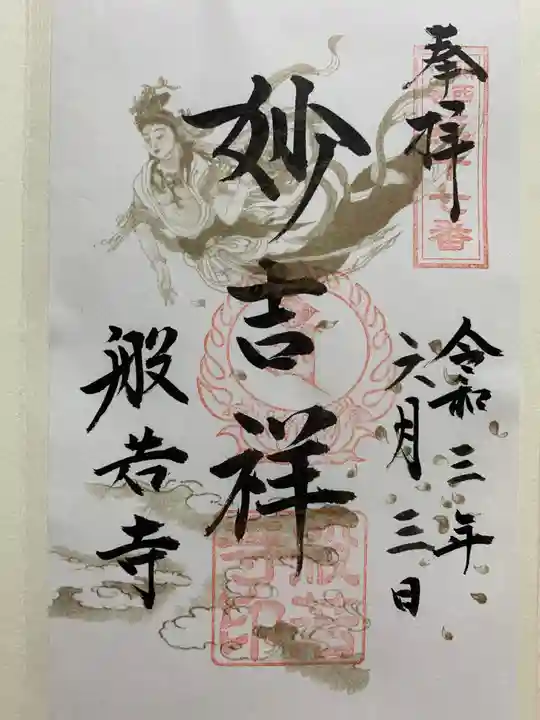 奉拝
令和三年
六月三日
妙吉祥
般若寺
般若寺印